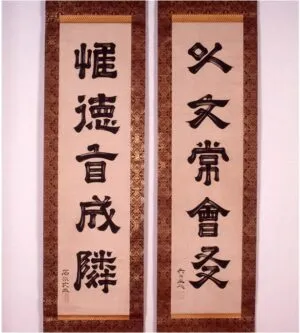 以文常會友
惟德自成隣